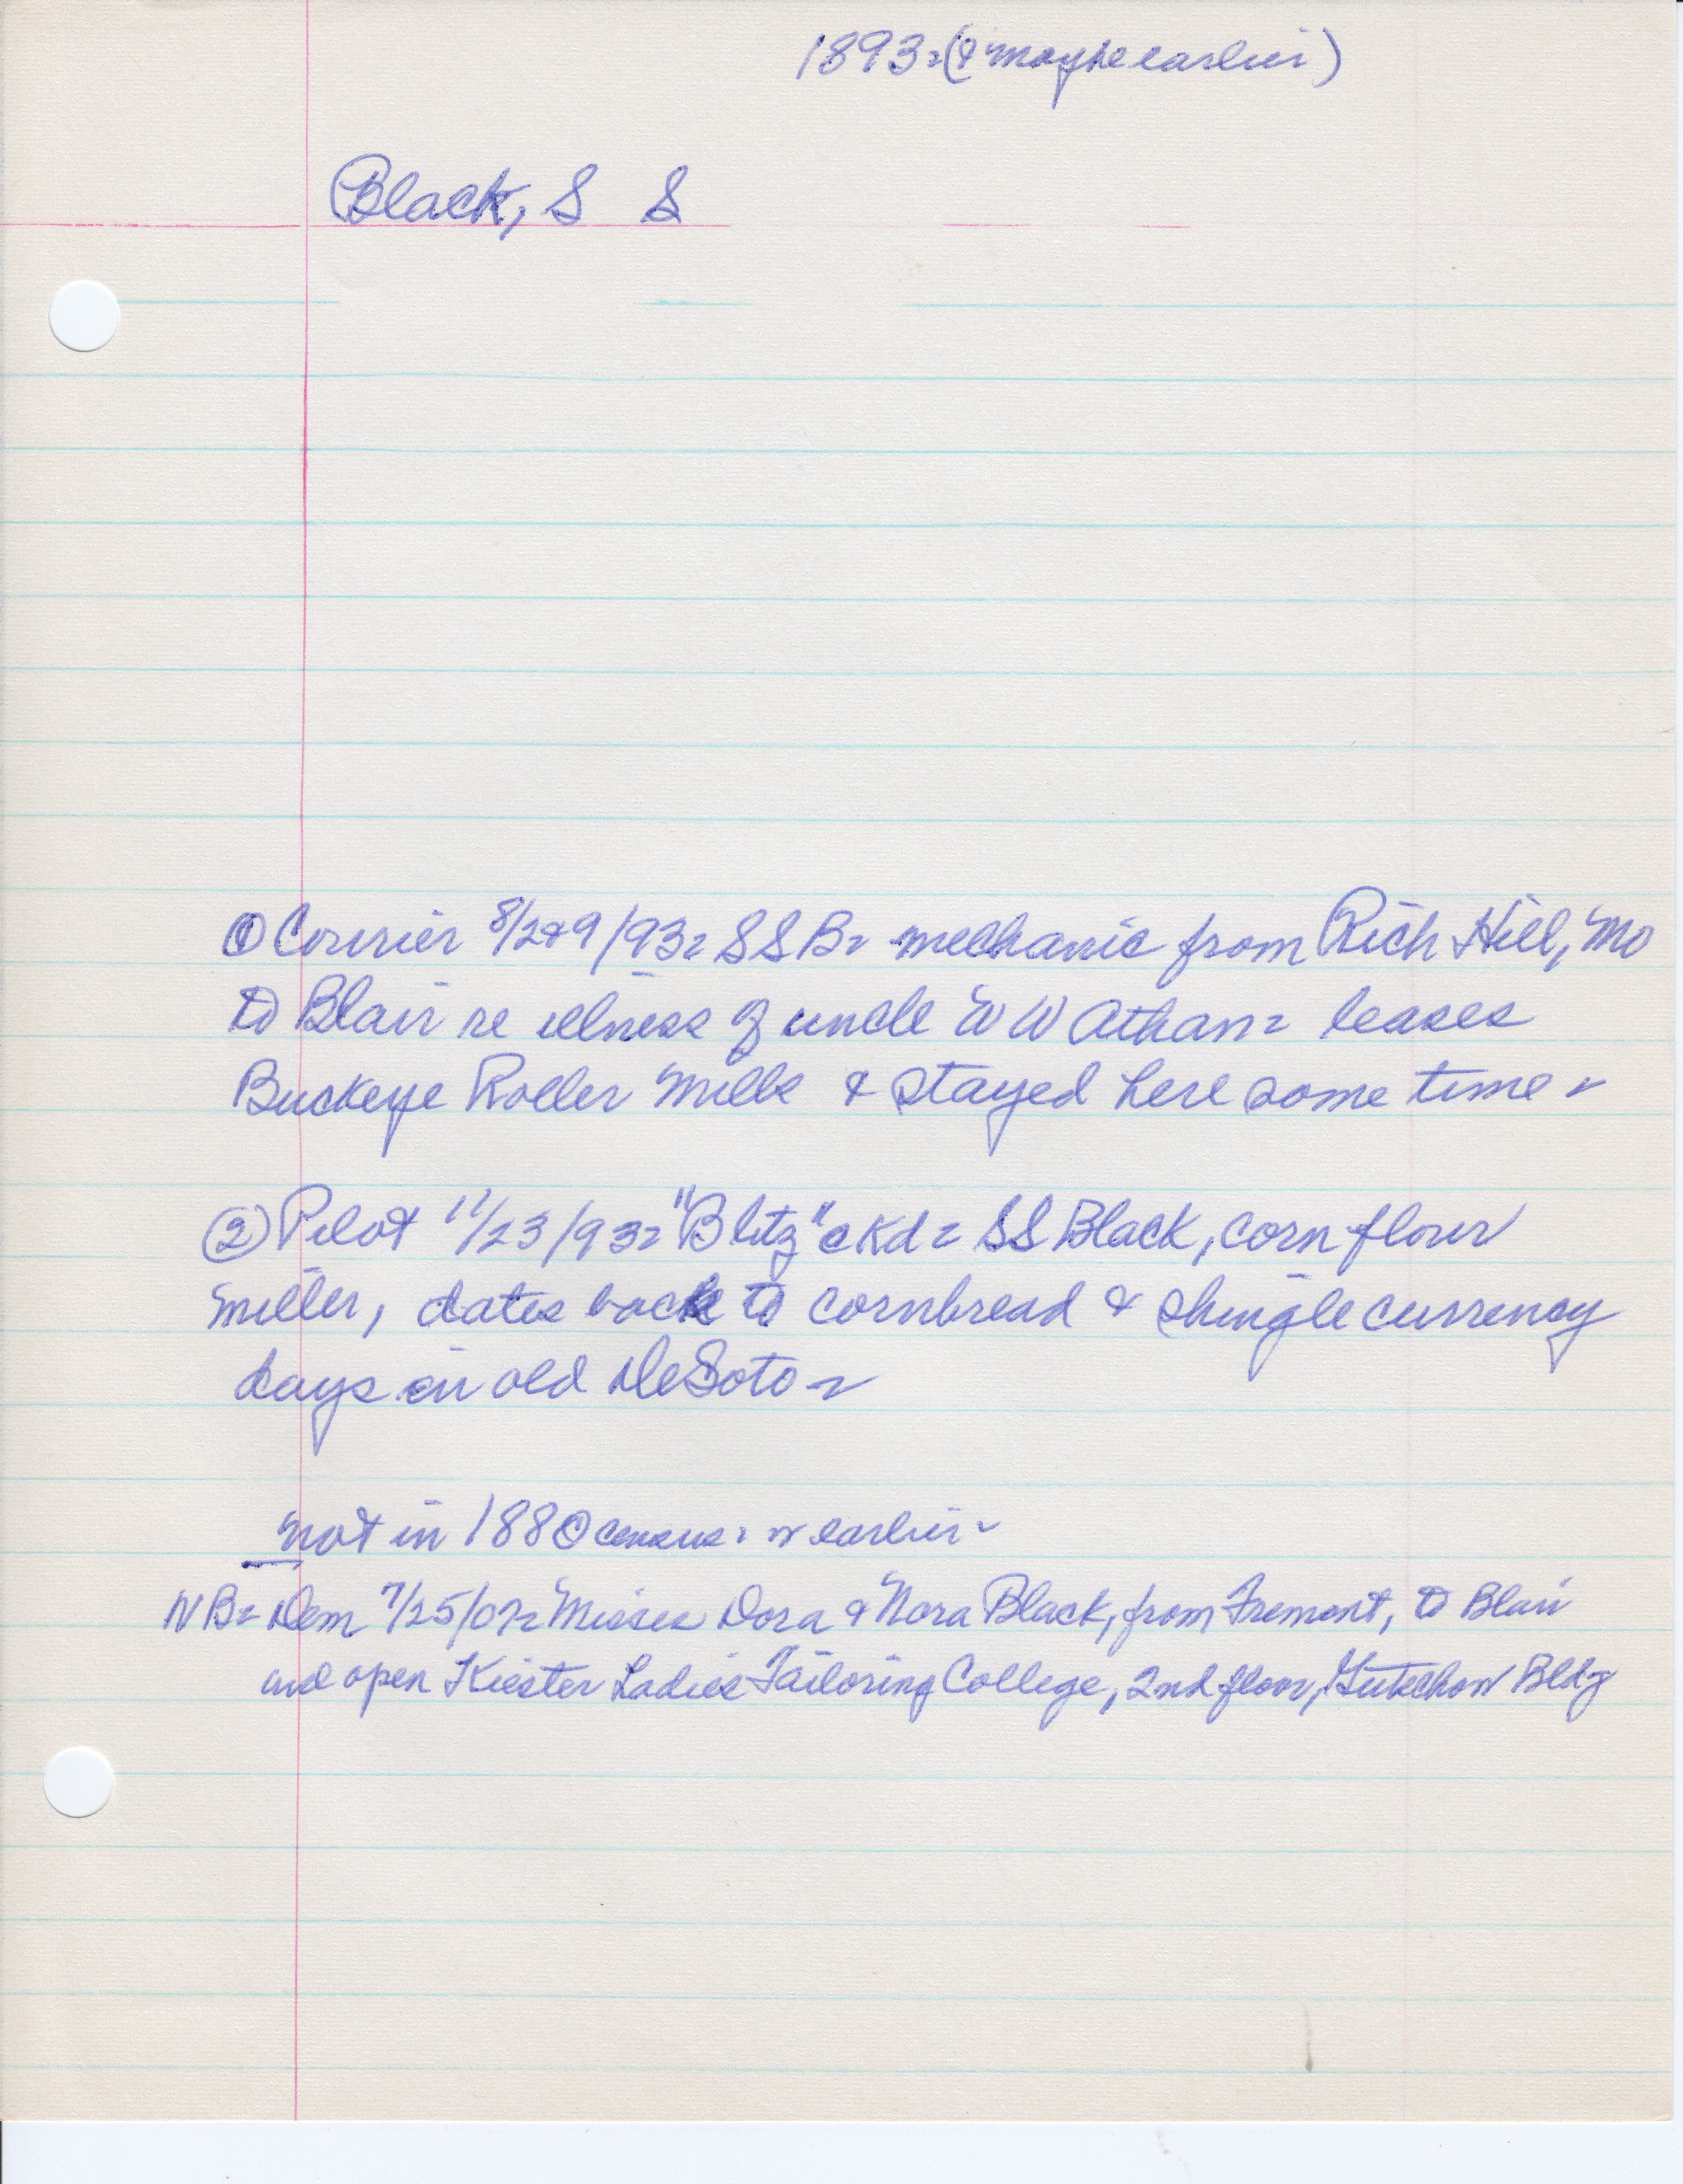 1893 = (& maybe earlier)
Black, S S
① Courier 8/2&9/93 = SSB = mechanic from Rich Hill, Mo
to Blair re illness of uncle W W Athan = leases
Buckeye Roller Mills & stayed here some time =
② Pilot 11/23/93 = "Blitz" ckd = SS Black, corn flour
miller, dates back to cornbread & shingle currency
days in old DeSoto =
not in 1880 census = or earlier =
NB = Dem 7/25/07 = Misses Dora & Nora Black, from Fremont, to Blair
and open Kiester Ladies Tailoring College, 2nd floor, Gutchow Bldg